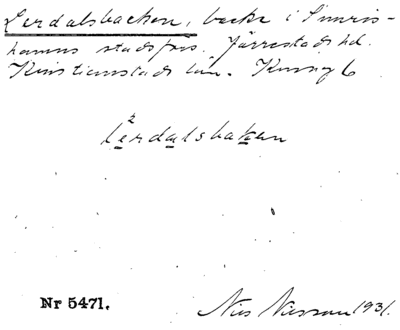 Lerdalsbacken, backe i Simris-
hamns stadsförs. Järrestads hd.
Kristianstads län. Kursiv 6
lerdalsbakan
Nr 5471. Nils Nilsson 1931.